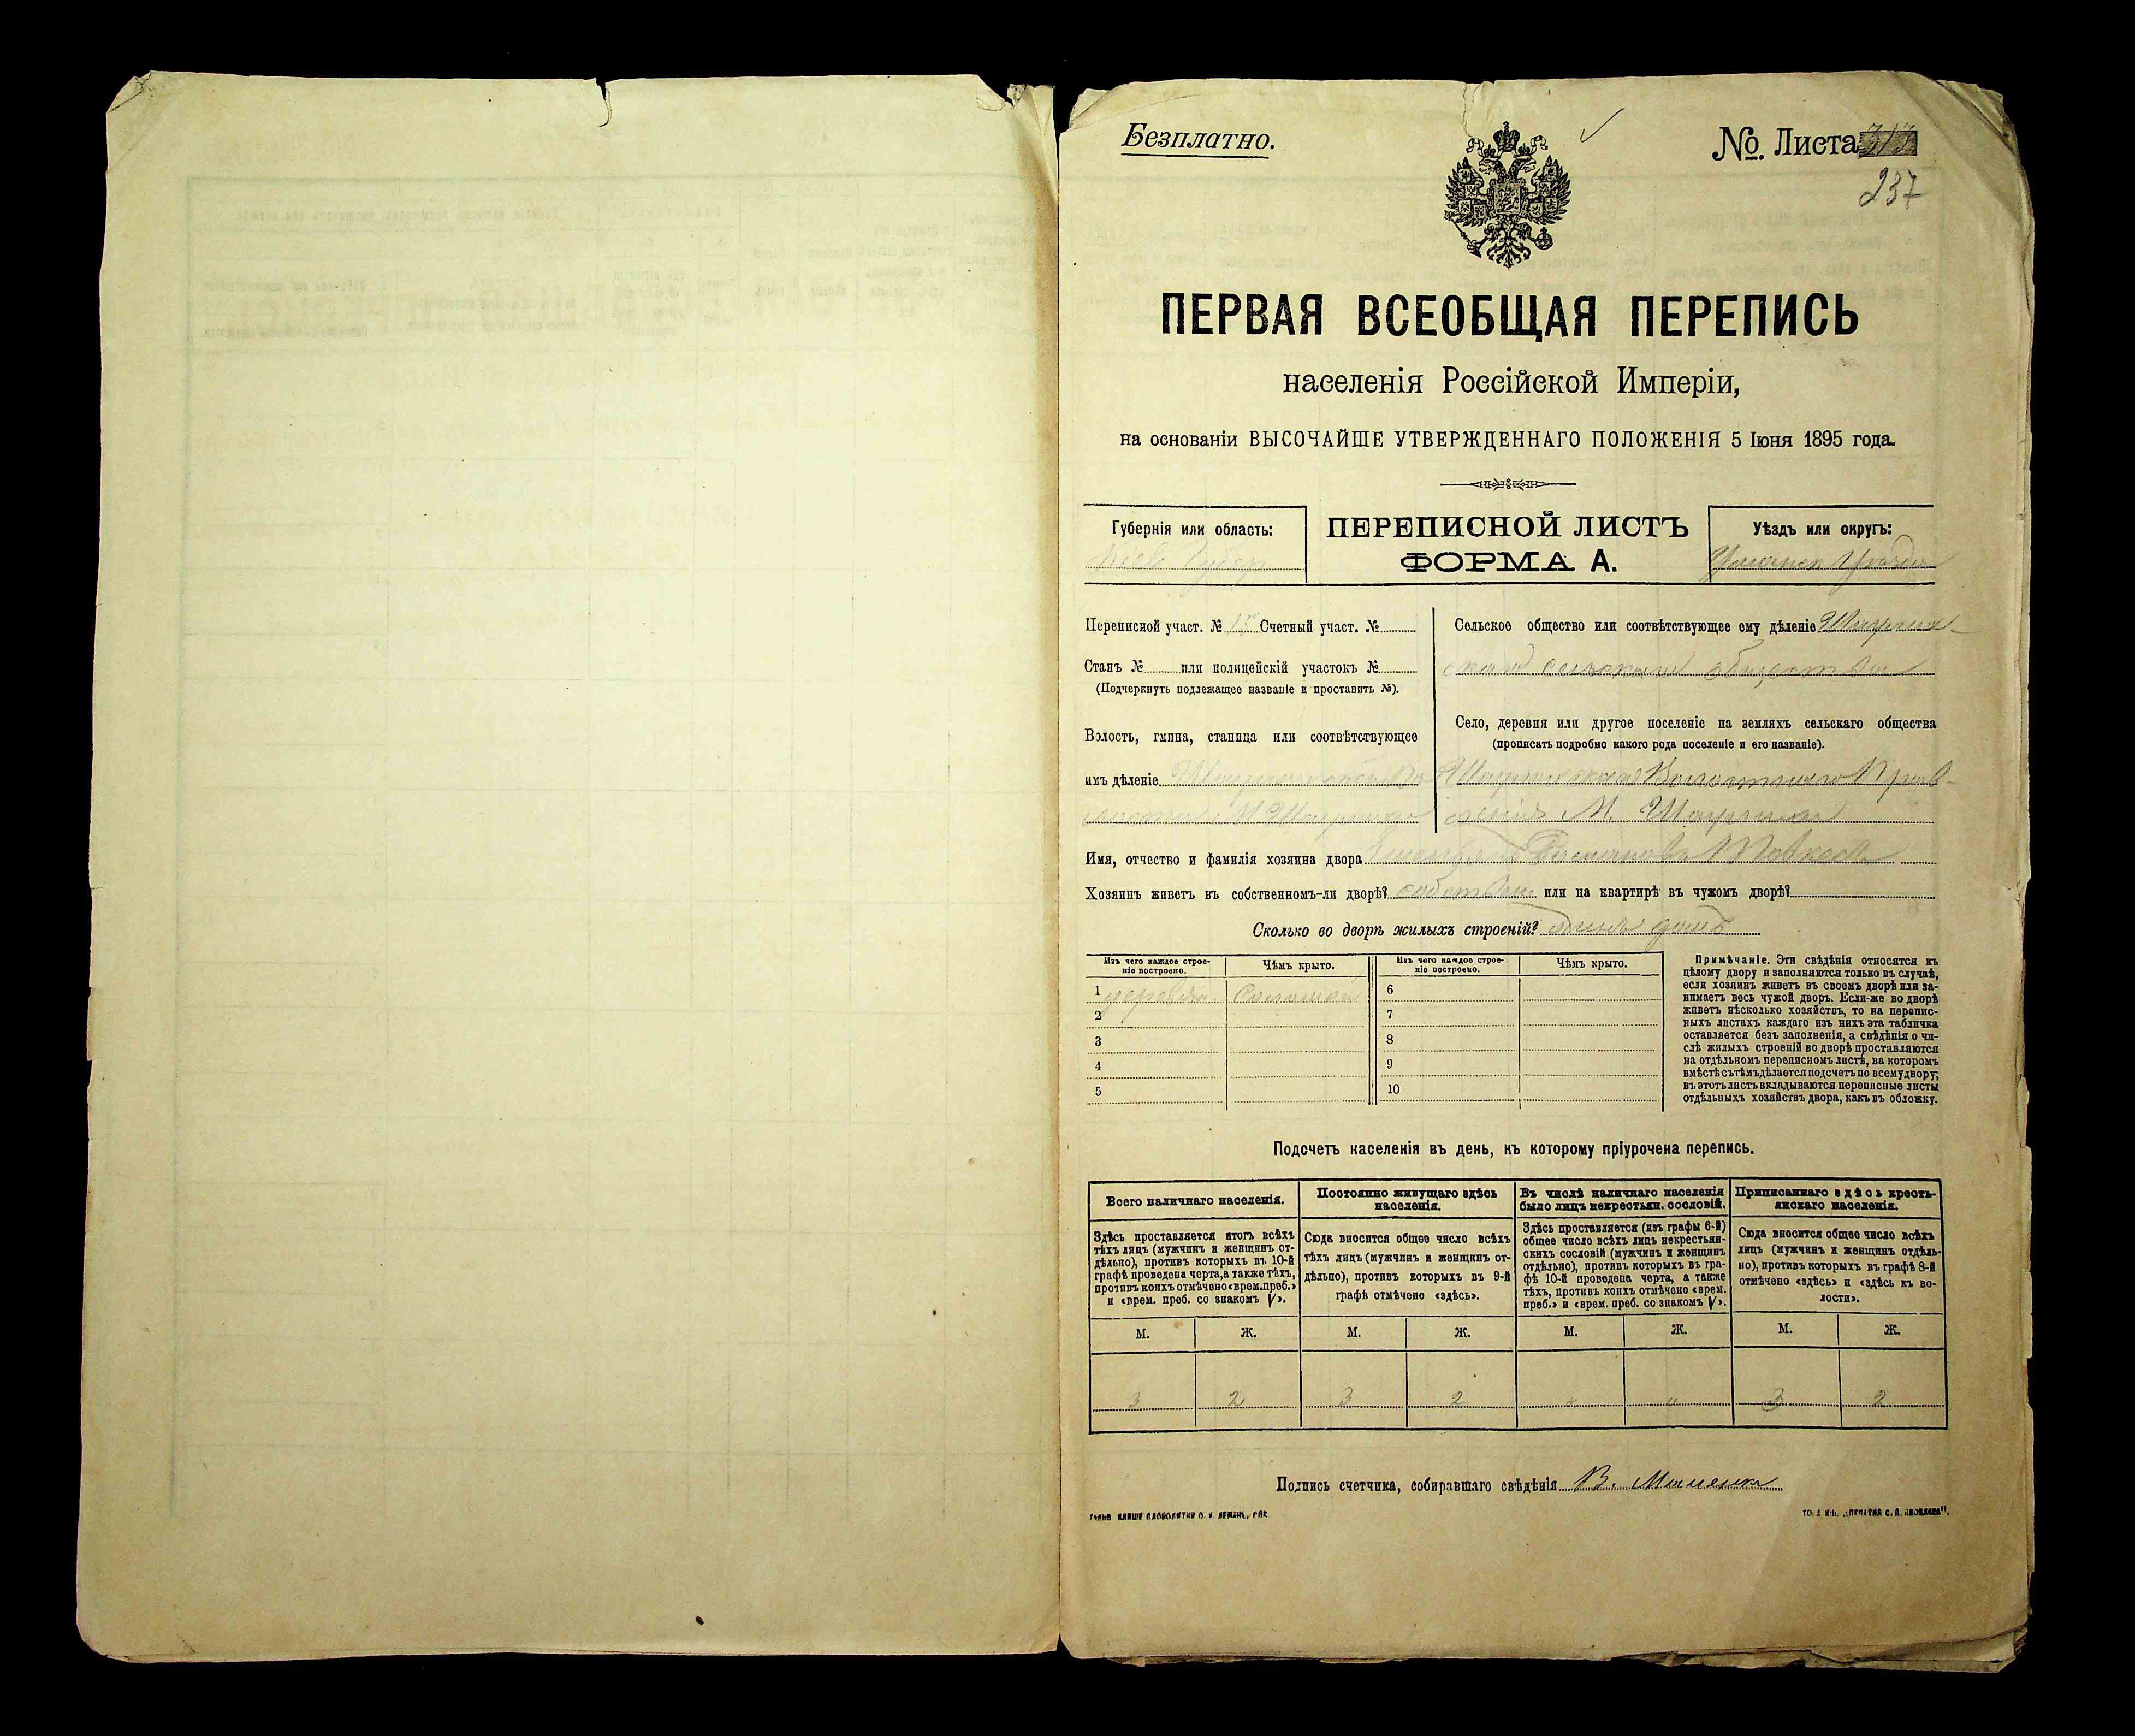 Безплатно.
№. Листа
237
ПЕРВАЯ ВСЕОБЩАЯ ПЕРЕПИСЬ
населенія Россійской Имперіи,
на основаніи ВЫСОЧАЙШЕ УТВЕРЖДЕННАГО ПОЛОЖЕНІЯ 5 Іюня 1895 года.
Губернія или область:
ПЕРЕПИСНОЙ ЛИСТЪ
ФОРМА А.
Уѣздъ или округъ:
Переписной участ. № 15 Счетный участ. №
Станъ № или полицейскій участокъ №
(Подчеркнуть подлежащее названіе и проставить №).
Волость, гмина, станица или соотвѣтствующее
имъ дѣленіе
Сельское общество или соотвѣтствующее ему дѣленіе
сельскаго общества
Село, деревня или другое поселеніе на земляхъ сельскаго общества
(прописать подробно какого рода поселеніе и его названіе).
М.
Имя, отчество и фамилія хозяина двора
Хозяинъ живетъ въ собственномъ-ли дворѣ? или на квартирѣ въ чужомъ дворѣ?
Сколько во дворѣ жилыхъ строеній? одинъ домъ
Изъ чего каждое строе-
ніе построено.
Чѣмъ крыто.
Изъ чего каждое строе-
ніе построено.
Чѣмъ крыто.
1 соломой 6
2 7
3 8
4 9
5 10
Примѣчаніе. Эти свѣдѣнія относятся къ
цѣлому двору и заполняются только въ случаѣ,
если хозяинъ живетъ въ своемъ дворѣ или за-
нимаетъ весь чужой дворъ. Если-же во дворѣ
живетъ нѣсколько хозяйствъ, то на перепис-
ныхъ листахъ каждаго изъ нихъ эта табличка
оставляется безъ заполненія, а свѣдѣнія о чи-
слѣ жилыхъ строеній во дворѣ проставляются
на отдѣльномъ переписномъ листѣ, на которомъ
вмѣстѣ съ тѣмъ дѣлается подсчетъ по всему двору;
въ этотъ листъ вкладываются переписные листы
отдѣльныхъ хозяйствъ двора, какъ въ обложку.
Подсчетъ населенія въ день, къ которому пріурочена перепись.
Всего наличнаго населенія.
Здѣсь проставляется итогъ всѣхъ
тѣхъ лицъ (мужчинъ и женщинъ от-
дѣльно), противъ которыхъ въ 10-й
графѣ проведена черта, а также тѣхъ,
противъ коихъ отмѣчено «врем. преб.»
и «врем. преб. со знакомъ V».
Постоянно живущаго здѣсь
населенія.
Сюда вносится общее число всѣхъ
тѣхъ лицъ (мужчинъ и женщинъ от-
дѣльно), противъ которыхъ въ 9-й
графѣ отмѣчено «здѣсь».
Въ числѣ наличнаго населенія
было лицъ некрестьян. сословій.
Здѣсь проставляется (изъ графы 6-й)
общее число всѣхъ лицъ некрестьян-
скихъ сословій (мужчинъ и женщинъ
отдѣльно), противъ которыхъ въ гра-
фѣ 10-й проведена черта, а также
тѣхъ, противъ коихъ отмѣчено «врем.
преб.» и «врем. преб. со знакомъ V».
Приписаннаго здѣсь кресть-
янскаго населенія.
Сюда вносится общее число всѣхъ
лицъ (мужчинъ и женщинъ отдѣль-
но), противъ которыхъ въ графѣ 8-й
отмѣчено «здѣсь» и «здѣсь къ во-
лости».
М. Ж. М. Ж. М. Ж. М. Ж.
3 2 3 2 " " 3 2
Подпись счетчика, собиравшаго свѣдѣнія